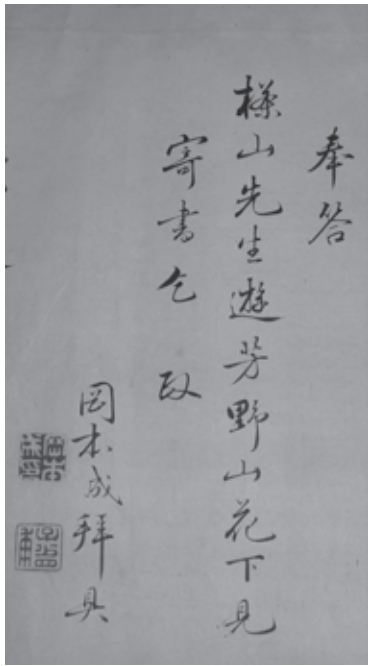 奉答
山先生遊芳野山花下見
寄書乞 政
岡本成拜具